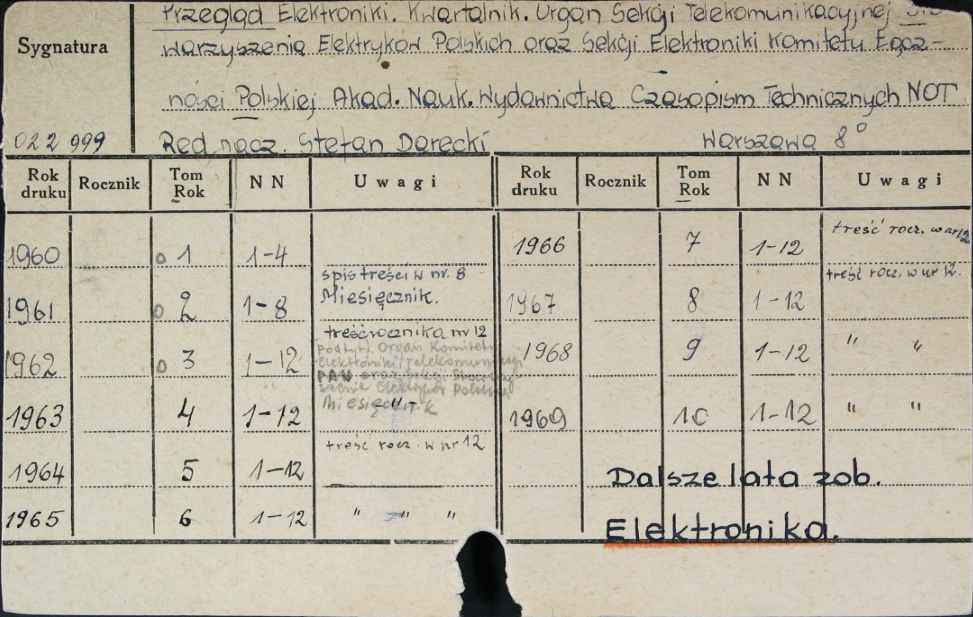 Przegląd Elektroniki. Kwartalnik. Organ Sekcji Telekomunikacyjnej Sto
Sygnatura
warzyszenia Elektryków Polskich oraz Sekcji Elektroniki Komitetu Łącz-
ności Polskiej Akad. Nauk. Wydawnictwa Czasopism Technicznych NOT
022 999
Red. nacz. Stefan Darecki Warszawa 8°
Rok druku Rocznik Tom Rok NN Uwagi Rok druku Rocznik Tom Rok NN Uwagi
1960 o 1 1-4 1966 7 1-12 treść rocz. w nr 12
1961 o 2 1-8 spis treści w nr. 8 Miesięcznik. 1967 8 1-12 treść rocz. w nr 12.
1962 o 3 1-12 treść rocznika nr 12 1968 9 1-12 " "
Podtyt. Organ Komitetu
Elektroniki i Telekomunikacji
PAN oraz Sekcji
Elektryków Polskich
Miesięcznik
1963 4 1-12 " 1969 10 1-12 " "
1964 5 1-12 treść rocz. w nr 12
Dalsze lata zob.
1965 6 1-12 " " "
Elektronika.